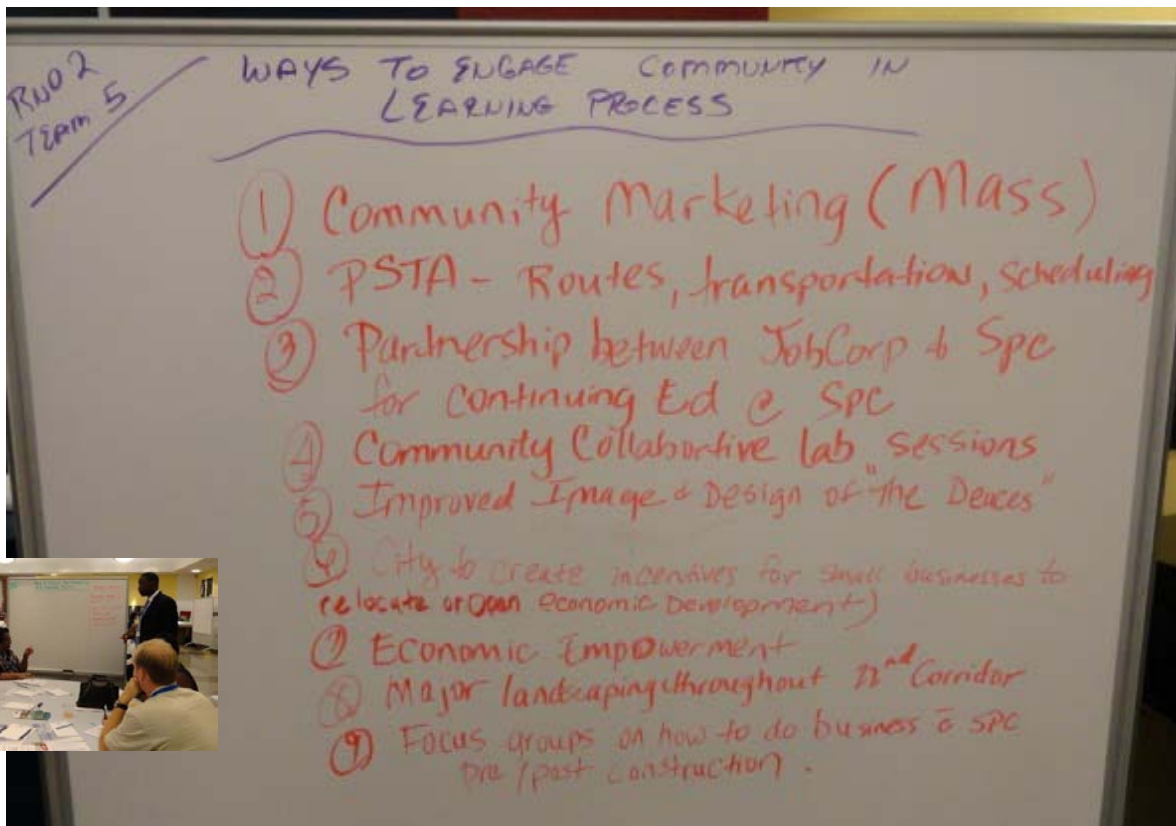 RND 2
TEAM 5
WAYS TO ENGAGE COMMUNITY IN
LEARNING PROCESS
① Community Marketing (Mass)
② PSTA - Routes, transportation, scheduling
③ Partnership between JobCorp & Spc
for continuing Ed @ SPC
④ Community Collabortive lab sessions
⑤ Improved Image & Design of "the Deuces"
⑥ City to create incentives for small businesses to
relocate or open economic Development)
⑦ Economic Empowerment
⑧ Major landscaping throughout 22nd Corridor
⑨ Focus groups on how to do business c̄ SPC
pre/post construction.